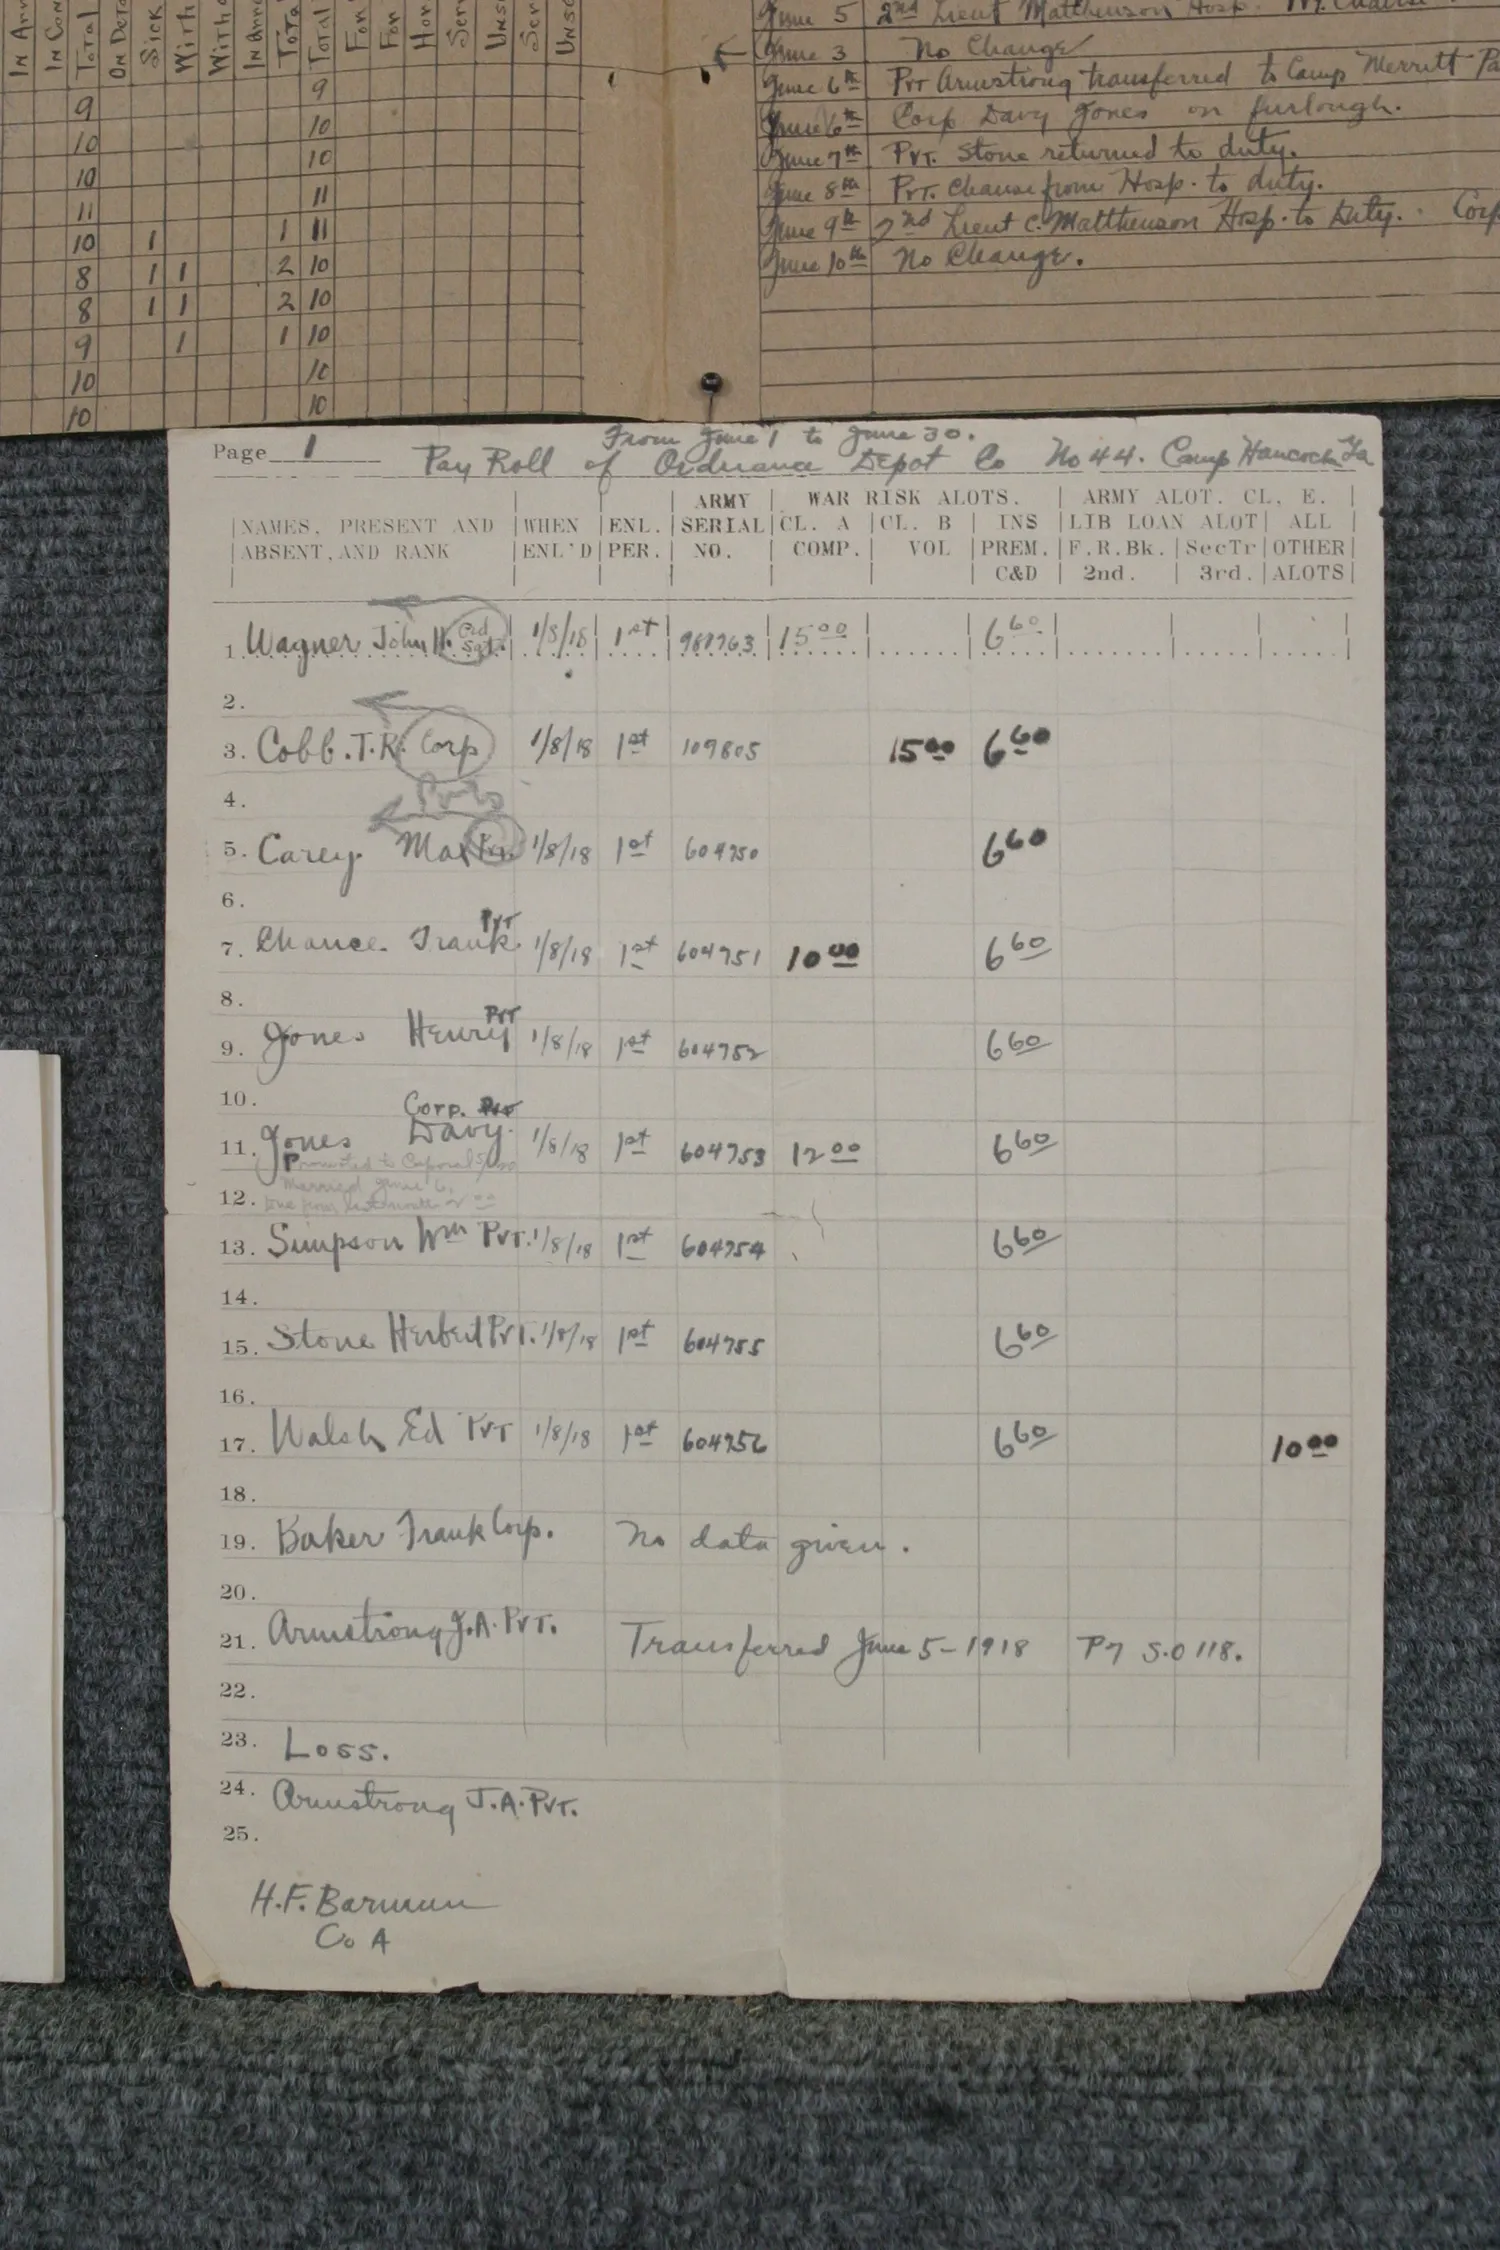 In Arr
In Con
Total
On Deta
Sick
With
Witho
In Arre
Total
Total
For
For
Hon
Ser
Unse
Ser
Unse
9 9
10 10
10 10
11 11
10 1 1 11
8 1 1 2 10
8 1 1 2 10
9 1 1 10
10 10
10 10
June 5 2nd Lieut Matthewson Hosp.
June 3 No Change
June 6th Pvt Armstrong transferred to Camp Merritt Pa
June 6th Corp Davy Jones on furlough.
June 7th Pvt. Stone returned to duty.
June 8th Pvt. Chance from Hosp. to duty.
June 9th 2nd Lieut C. Matthewson Hosp. to Duty. Corp
June 10th No Change.
From June 1 to June 30.
Page 1 Pay Roll of Ordnance Depot Co No 44. Camp Hancock Ga
ARMY WAR RISK ALOTS. ARMY ALOT. CL, E.
NAMES, PRESENT AND WHEN ENL. SERIAL CL. A CL. B INS LIB LOAN ALOT ALL
ABSENT, AND RANK ENL'D PER. NO. COMP. VOL PREM. F.R.Bk. SecTr OTHER
C&D 2nd. 3rd. ALOTS
1. Wagner John H. Ord Sgt. 1/8/18 1st 987763 15 00 6 60
2.
3. Cobb. T.R. Corp 1/8/18 1st 109805 15 00 6 60
4. Pvts
5. Carey. 1/8/18 1st 604750 6 60
6.
7. Chance. Frank Pvt 1/8/18 1st 604751 10 00 6 60
8.
9. Jones Henry Pvt 1/8/18 1st 604752 6 60
10. Corp. Pvt
11. Jones Davy. 1/8/18 1st 604753 12 00 6 60
Promoted to Corporal
Married June 6,
12.
13. Simpson Wm Pvt. 1/8/18 1st 604754 6 60
14.
15. Stone Herbert Pvt. 1/8/18 1st 604755 6 60
16.
17. Walsh Ed Pvt 1/8/18 1st 604756 6 60 10 00
18.
19. Baker Frank Corp. No data given.
20.
21. Armstrong J.A. Pvt. Transferred June 5-1918 P7 S.O 118.
22.
23. Loss.
24. Armstrong J.A. Pvt.
25.
H.F. Barmun
Co A